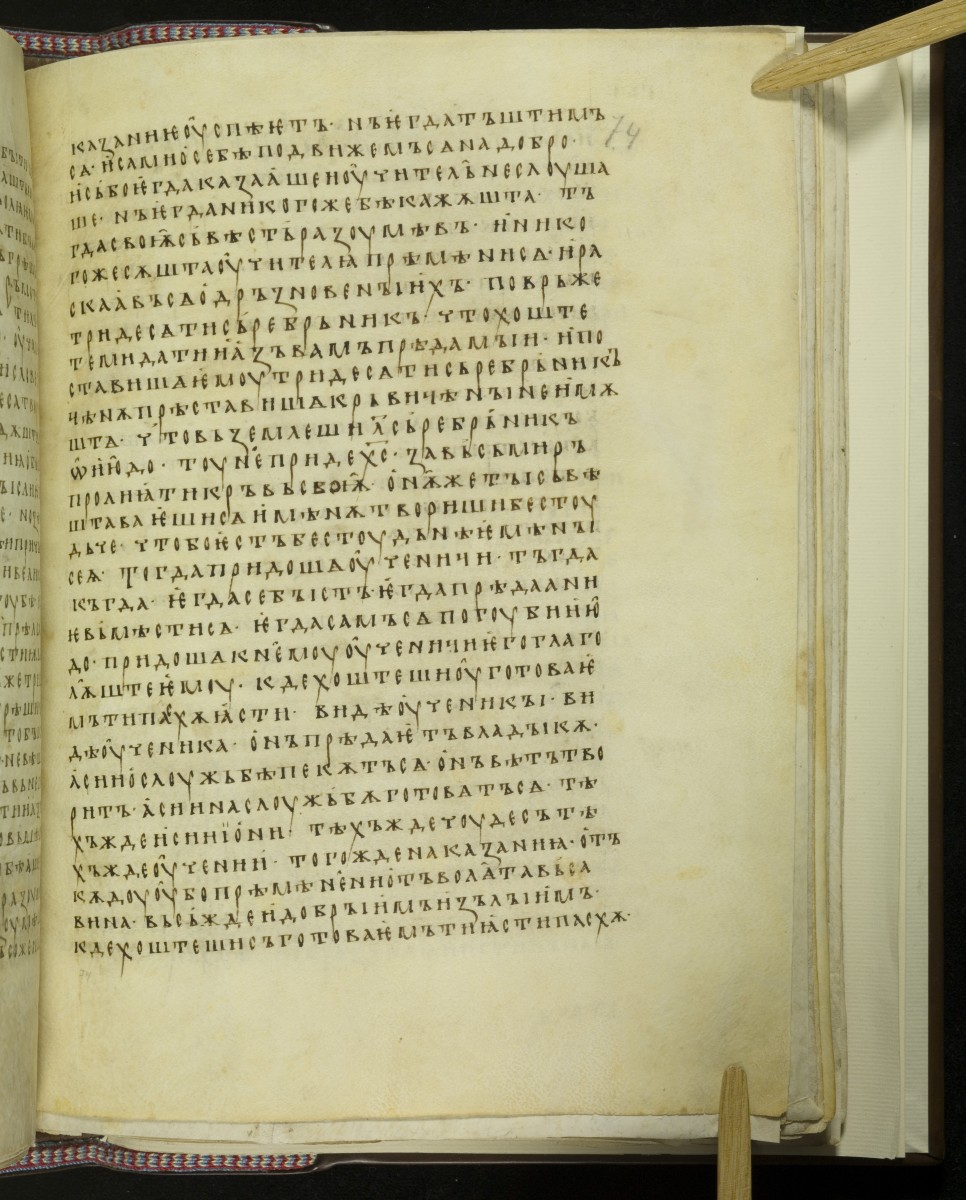 казаниѥ оу҆спѣѥтъ· нъ ѥ҆гда тъштимъ
сѧ· и҆ сами о҆ себѣ подвижемъ сѧ на добро·
74
и҆сь бо ѥ҆гда казаа҆ше и оу҆чительн҄ не слоуша
ше· нъ ѥ҆гда никогоже бѣ кажѫшта· тъ
гда своѭ҆ съвѣсть разоумѣвъ· и҆ нико
гоже сѫшта оу҆чителꙗ прѣмѣни сѧ· и҆ ра
скаа҆въ сѧ о҆ дръзновеныи҆хъ· поврьже
три десѧти сьребрьникъ· что хоште
те ми дати и а҆зъ вамъ прѣдамь и· и҆ по
ставишѧ ѥ҆моу три десѧти сьребрьникъ
чѣнѫ прѣставишѧ крьви чѣны не и҆мѫ
шта· что въземлеши л҃ сьребрьникъ
ѡ҆ и҆ю҆до· тоуне приде х҃с· за вьсь миръ
пролиꙗти кръвь своѭ҆· о҆ н҄ѭже ты съвѣ
штаваѥ҆ши сѧ и҆ мѣнѫ твориши бестоу
дьче· что бо ѥ҆стъ бестоудьнѣѥ҆ мѣны
сеѩ· тогда придошѧ оу҆ченичи· тъгда
къгда· ѥ҆гда се бъістъ· ѥ҆гда прѣдаани
ѥ вьмѣсти сѧ· ѥ҆гда самъ сѧ погоуби и҆ю҆
до· придошѧ к н҄емоу оу҆ченичи ѥ҆го глаго
л҄ѭште ѥ҆моу· кде хоштеши оу҆готоваѥ҆
мъ ти пасхѫ ꙗ҆сти· видѣ оу҆ченикы· ви
дѣ оу҆ченика· о҆нъ прѣдаѥ҆тъ владыкѫ·
а҆ си и о҆ слоужьбѣ пекѫтъ сѧ· о҆нъ вѣтъ тво
ритъ· а҆ си на слоужьбѫ готовѧтъ сѧ· тѣ
хъжде и҆ си и ї о҆ни· тѣхъжде чоудесъ тѣ
хъжде оу҆чении· тогожде наказаниꙗ· о҆тъ
кѫдоу оу҆бо прѣмѣнен҄иѥ отъ волѧ та вьсꙗ
вина· вьсьжде и҆ добрыи҆мъ и҆ зълыи҆мъ·
кде хоштеши съготоваѥ҆мъ ти ꙗ҆сти пасхѫ·